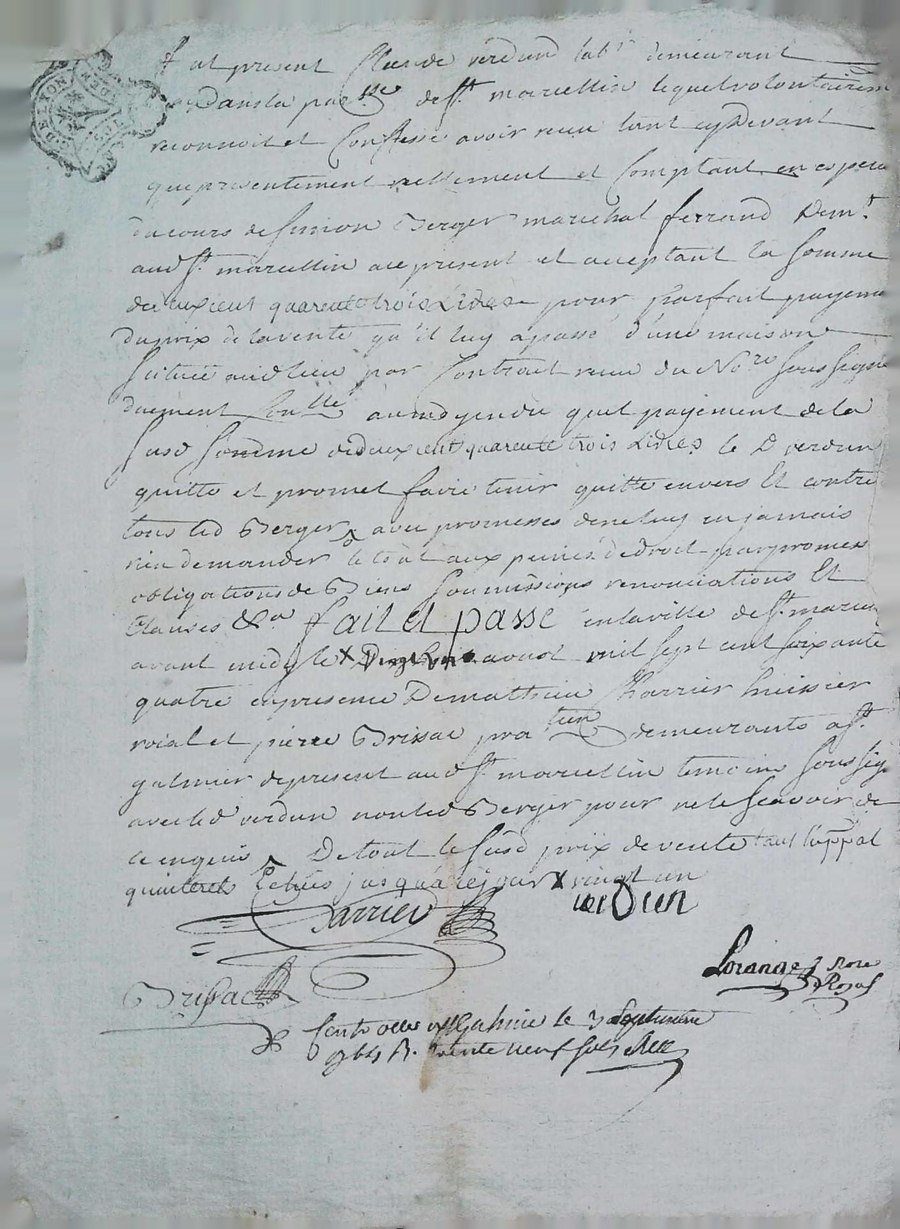 fut present Claude verdun lab.r demeurant
Dans la par.sse de St. marcellin lequel volontairem
reconnoit et Confesse avoir receu tant cy Devant
que presentement reellement et Comptant en espece
du cours de Simon Berger marechal ferrand Dem.t
aud St. marcellin acy present et acceptant la Somme
de deux cent quarente trois Livres pour parfait payeme
du prix de la vente qu'il luy a passé d'une maison
Scituée aud lieu par Contrait receu du No.re Sous Signé
duement Con.llé au moyen du quel payement de la
Susd Somme de deux cent quarente trois Livres le D verdun
quitte et promet faire tenir quitte envers Et contre
tous led Berger avec promesses de ne luy en jamais
rien demander le tout aux peines de droit par promess
obligations de Biens Soumissions renonciations Et
Clauses &.a fait et passé en la ville de St. marcel
avant midy le X Vingt un aoust mil sept cent soixante
quatre en presence De mathieu Charrier huissier
roial et pierre Brissac pra.tien demeurants a St.
galmier de present aud St. marcellin temoins Sous Sig
avec led verdun non led Berger pour ne le Scavoir de
ce enquis De tout le Susd prix de vente
Echües jusqu'a ce jour X vingt un
Charrier verdun
Lorange Nore
Royal
Brissac
Controllé a St Galmier le 3 Septembre
1764 R. trente neuf sols